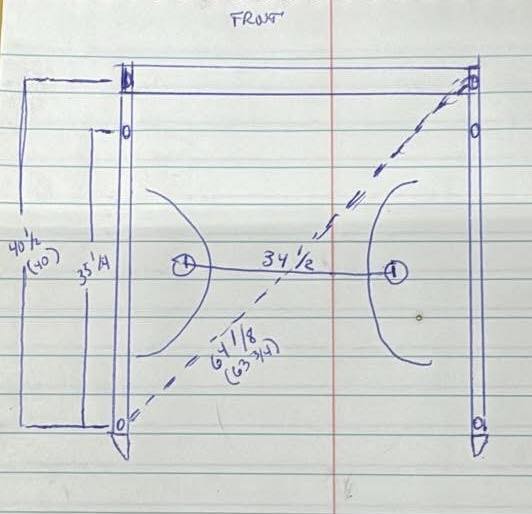 FRONT
40 1/2
(40)
35 1/4
34 1/2
64 1/8
(63 3/4)